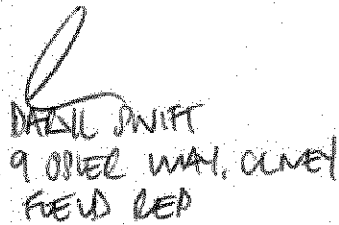 DARYL SWIFT
9 OSIER WAY, OLNEY
FIELD REP